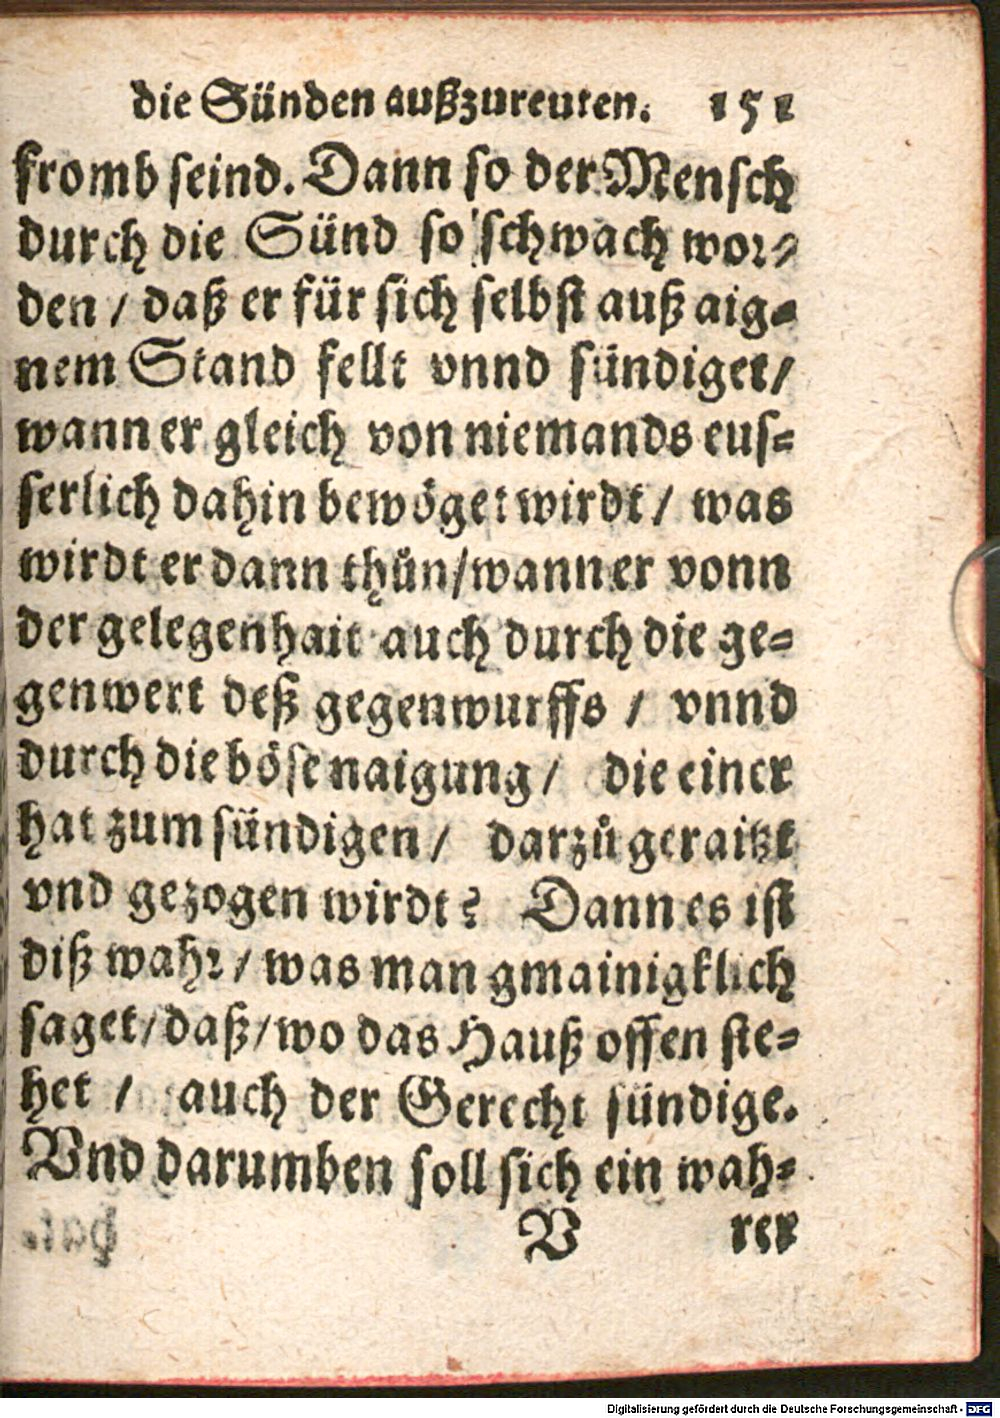 die Sünden außzureuten. 151
fromb seind. Dann so der Mensch
durch die Sünd so schwach wor⸗
den / daß er für sich selbst auß aig⸗
nem Stand fellt vnnd sündiget /
wann er gleich von niemands eus⸗
serlich dahin bewöget wirdt / was
wirdt er dann thůn / wann er vonn
der gelegenhait auch durch die ge⸗
genwert deß gegenwurffs / vnnd
durch die böse naigung / die einer
hat zum sündigen / darzů geraitzt
vnd gezogen wirdt? Dann es ist
diß wahr / was man gmainigklich
saget / daß / wo das Hauß offen ste⸗
het / auch der Gerecht sündige.
Vnd darumben soll sich ein wah⸗
V rer
Digitalisierung gefördert durch die Deutsche Forschungsgemeinschaft - DFG